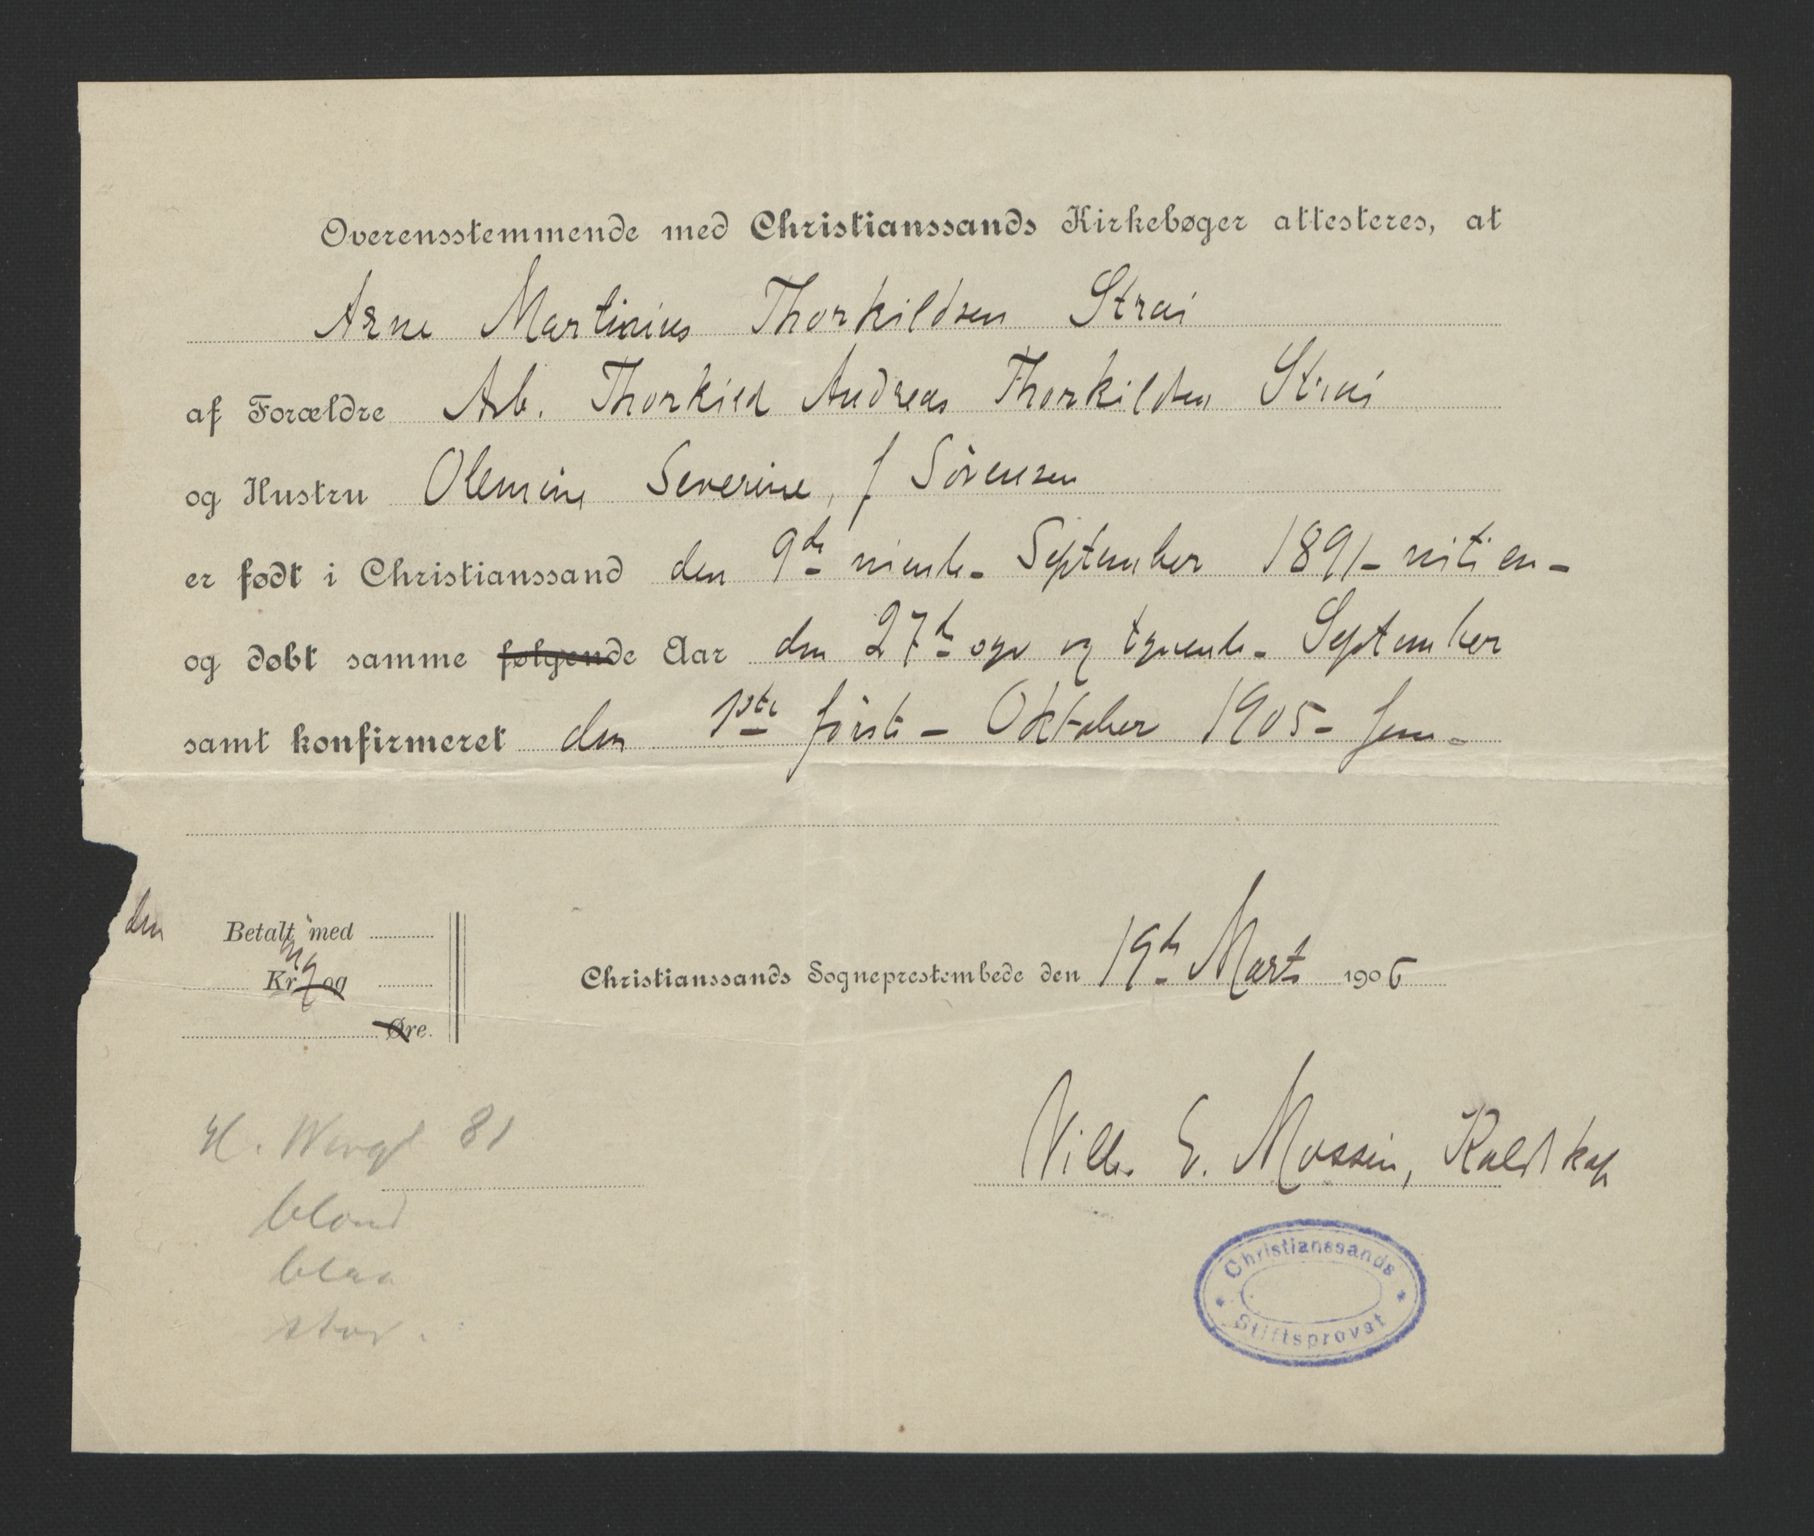 Overensstemmende med Christianssands Kirkebøger attesteres, at
Arne Martinius Thorkildsen Strai
af Forældre Arb. Thorkild Andreas Thorkildsen Strai
og Hustru Olemine Severine, f Sörensen
er født i Christianssand den 9de niende - September 1891 - nitien -
og døbt samme følgende Aar den 27de syv og tyvende - September
samt konfirmeret den 1ste förste - Oktober 1905 - fem -
den
Betalt med
Kr. og
Øre.
Christianssands Sogneprestembede den 19de Marts 1906
Vilh. E. Mossin, Kaldskap
H. Wergl 81
blond
blaa
stor.
Christianssands
Stiftsprovst